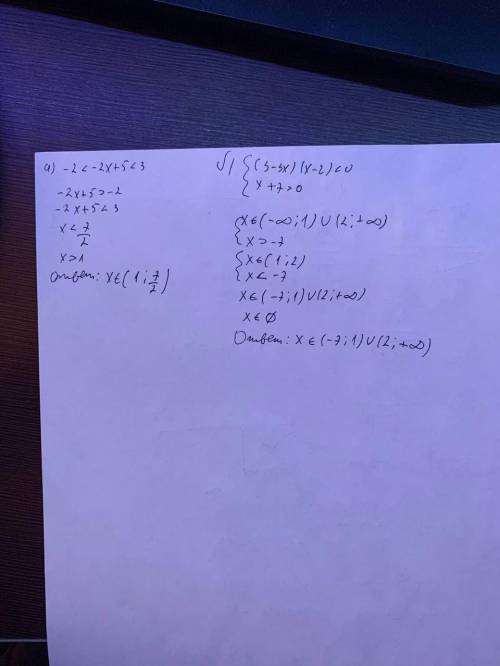 а) -2 < -2x+5 < 3
-2x+5 > -2
-2x+5 < 3
x < 7/2
x > 1
Ответ: x ∈ (1; 7/2)
б) { (3-3x)(x-2) < 0
x + 7 > 0
{ x ∈ (-∞; 1) ∪ (2; +∞)
x > -7
{ x ∈ (1; 2)
x < -7
x ∈ (-7; 1) ∪ (2; +∞)
x ∈ ∅
Ответ: x ∈ (-7; 1) ∪ (2; +∞)